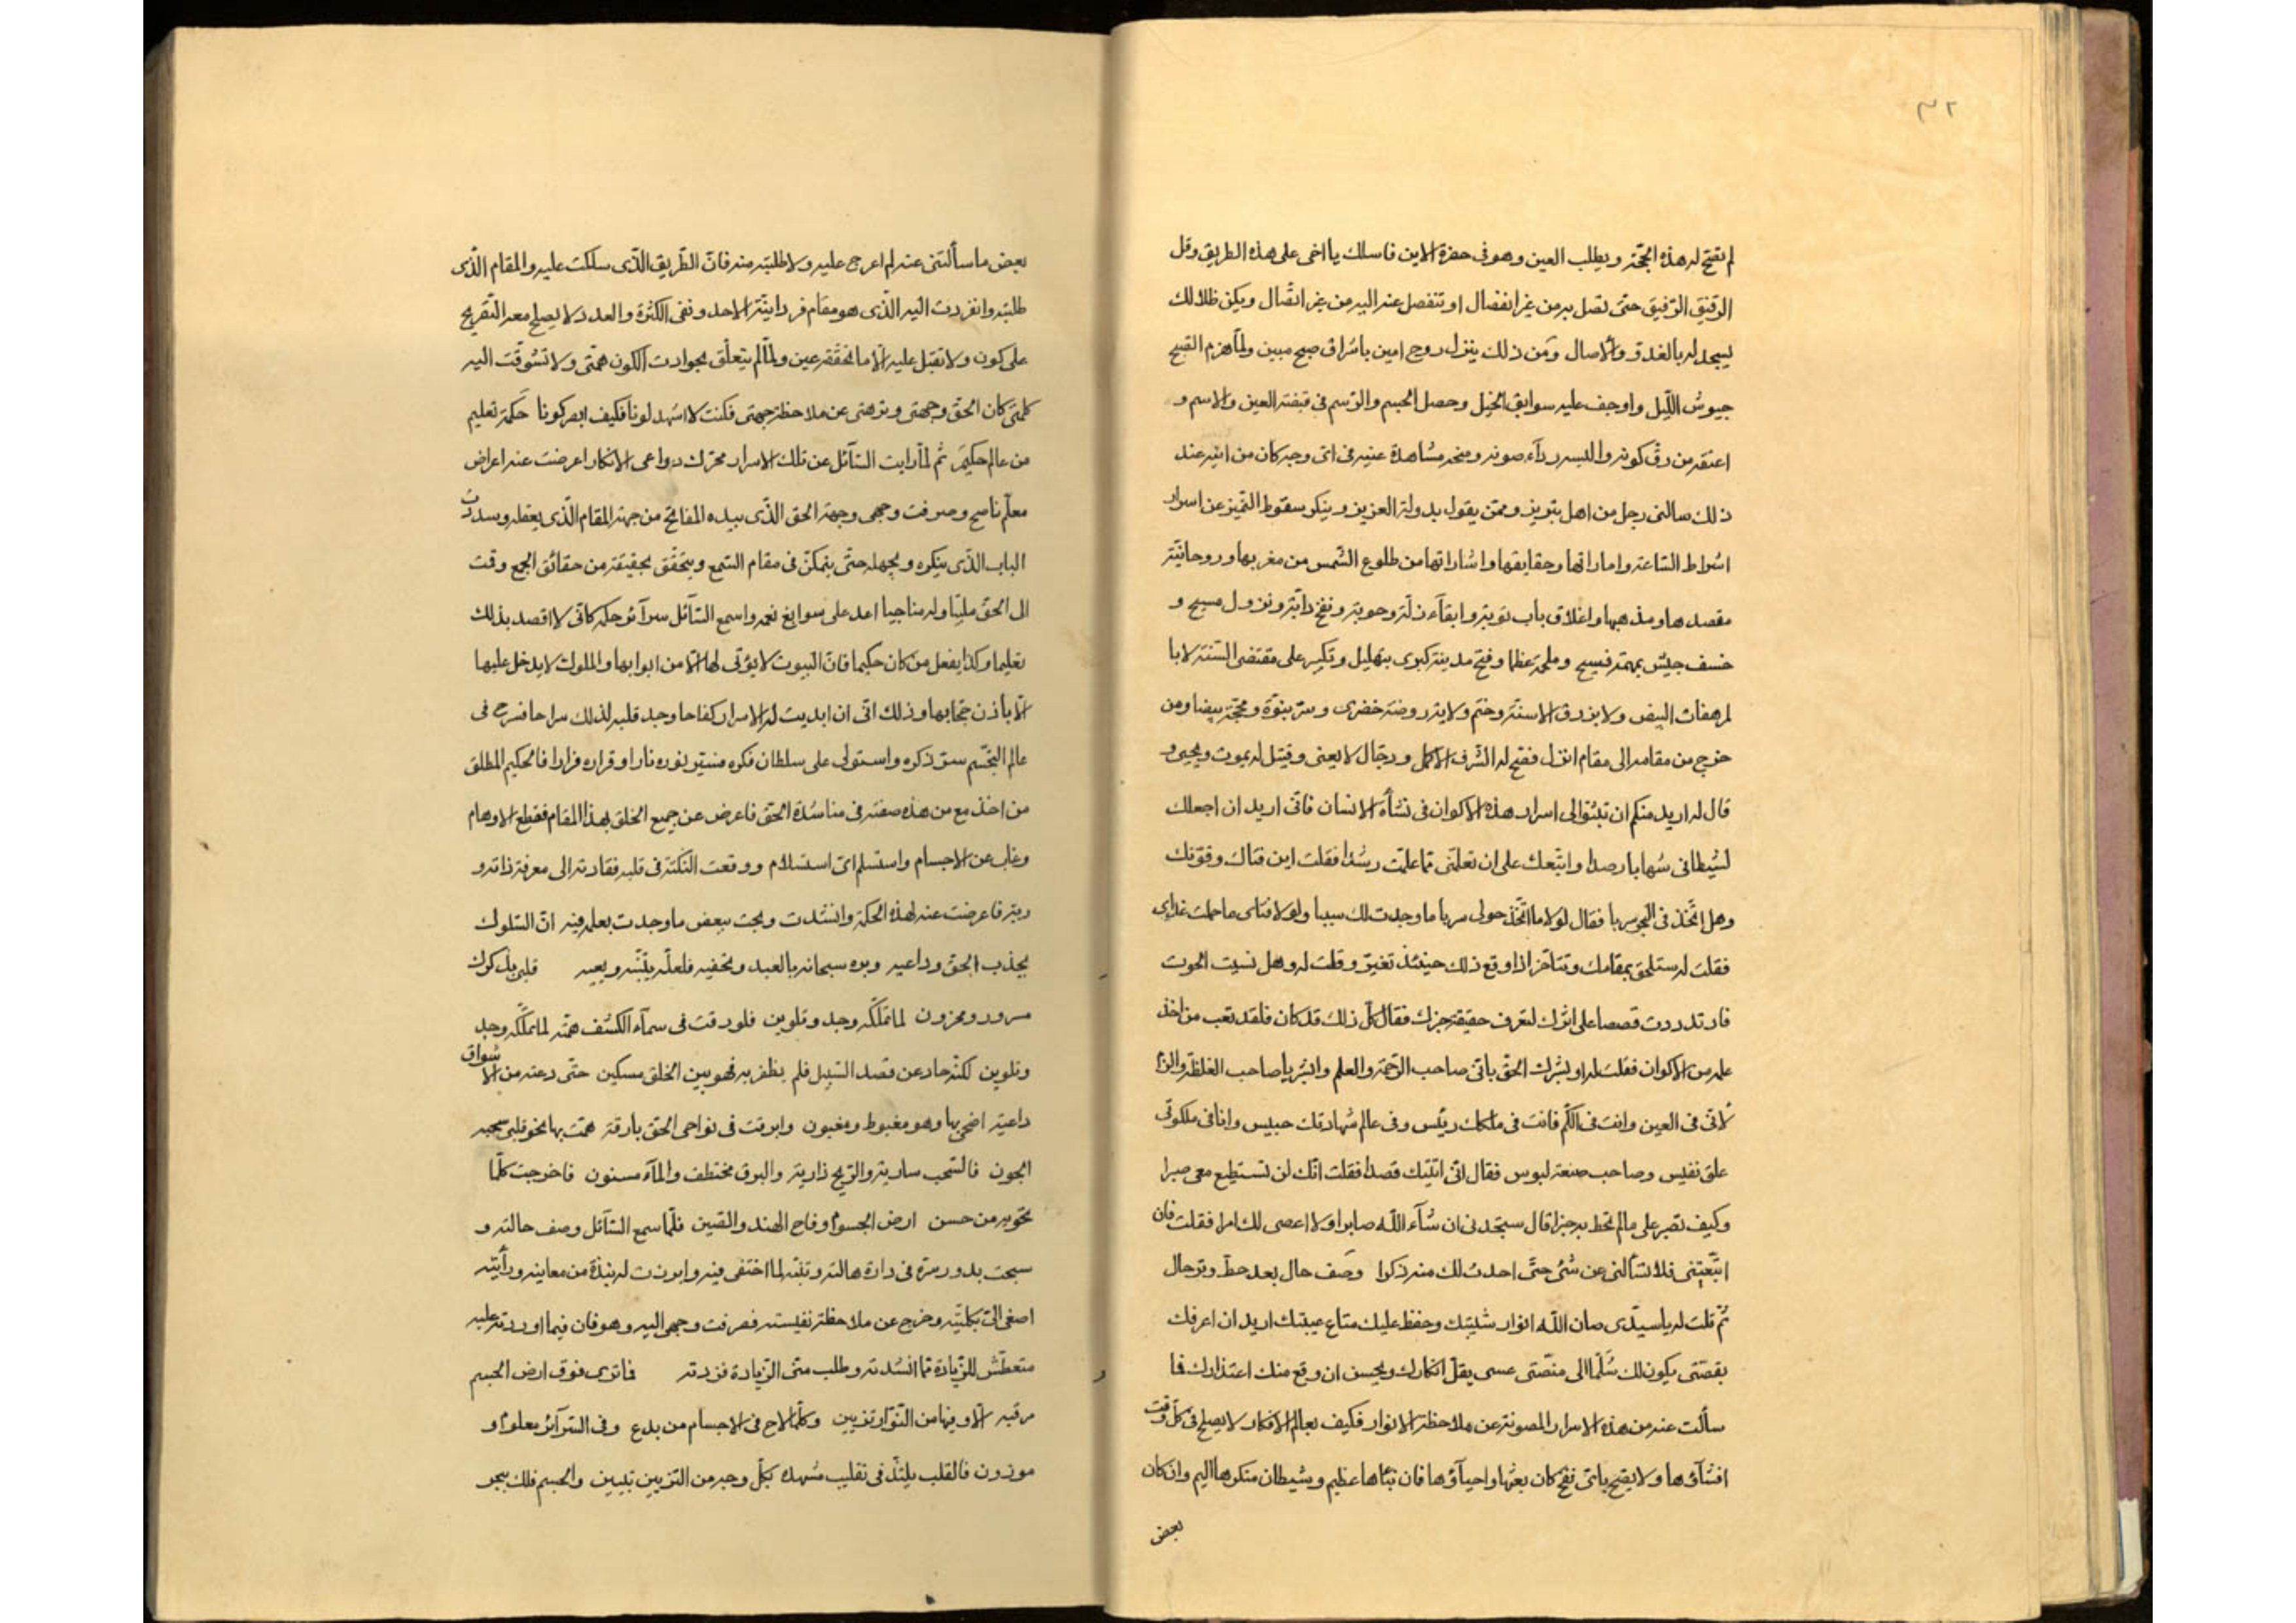 ٣٢
لم تفتح له هذه المحجّة ويطلب العين وهو في حضرة الاين فاسلك يا اخى على هذه الطريق وقل
الرفيق الرّفيق حتى تصل به من غير انفصال او تنفصل عنه اليه من غير اتصال ويكن ظلالك
يسجد له بالغدوّ والآصال ومن ذلك ينزل روح امين باشراق صبح مبين ولمّا هزم الصّبح
جيوش اللّيل واوجف عليه سوابق الخيل وحصل الجسم والرّسم في قبضة العين والاسم و
اعتقه من رقّ كونه والبسه ردآء صونه ومنحه مشاهدة عينه في اىّ وجه كان من اينه عند
ذلك سالنى رجل من اهل تبريز وممّن يقول بدولة العزيز وينكر سقوط التّميز عن اسرار
اشراط السّاعة واماراتها وحقايقها واشاراتها من طلوع الشّمس من مغربها وروحانيّة
مقصدها ومذهبها واغلاق باب توبة وابقآء زلّة وحوبة ونفخ دابّة ونزول مسيح و
خسف جيش بمهمه فسيح وملحمة عظما وفتح مدينة كبرى بتهليل وتكبير على مقتضى السّنّة لا با
لمرهفات البيض ولا بزرق الاسنّة وختم ولاية وروضة خضرى وسرّ نبوّة ومحجّة بيضا ومن
خرج من مقامه الى مقام انزل ففتح له الشّرف الاكمل ودجّال لا يعنى وقتيل له يموت ويحيى و
قال له اريد منكم ان تبثّوا لى اسرار هذه الاكوان في نشأة الانسان فانّى اريد ان اجعلك
لشيطانى شهابا رصدا واتّبعك على ان تعلّمنى ممّا علّمت رشدا فقلت اين فتاك وقوّتك
وهل اتّخذ في البحر سربا فقال لولا ما اتّخذ حولى سربا ما وجدت لك سببا ولولا فتاى ما حملت غذاى
فقلت له ستلحق بمقامك وتتأخّر اذا وقع ذلك حينئذ تغيّر وقلت له وهل نسيت الحوت
فارتددت قصصا على اثرك لتعرف حقيقة خبرك فقال كلّ ذلك قد كان فلقد تعب من اخذ
علمه من الاكوان فقلت له او لشرك الحقّ بانّى صاحب الرّحمة والعلم وابشر يا صاحب الغلظة والرّد
لانّى في العين وانت في الكمّ فانت في ملكك رئيس وفى عالم شهادتك حبيس وانا في ملكوتى
علق نفيس وصاحب صنعة لبوس فقال انّى اتيتك قصدا فقلت انّك لن تستطيع معى صبرا
وكيف تصبر على ما لم تحط به خبرا قال ستجدنى ان شآء اللّه صابرا ولا اعصى لك امرا فقلت فان
اتّبعتنى فلا تسألنى عن شئ حتّى احدث لك منه ذكرا وصف حال بعد حطّ وترحال
ثمّ قلت له يا سيّدى صان اللّه انوار شيبتك وحفظ عليك متاع عيبتك اريد ان اعرفك
بقصّتى يكون لك سُلّما الى منصّتى عسى يقلّ انكارك ويحسن ان وقع منك اعتذارك فما
سألت عنه من هذه الاسرار المصونة عن ملاحظة الانوار فكيف بعالم الافكار لا يصلح في كلّ وقت
افشآؤها ولا يصحّ باىّ نفخ كان بعثها واحيآؤها فان نبّاها عظيم وشيطان منكرها اليم وان كان
بعض
بعض ما سألتنى عنه لم اعرج عليه ولا طلبته منه فانّ الطّريق الّذى سلكت عليه والمقام الّذى
طلبته وانفردت اليه الّذى هو مقام فردانيّة الاحد ونفى الكثرة والعدد لا يصلح معه التّعريج
على كون ولا تقبل عليه الّا ما تحقّقه عين ولمّا لم يتعلّق بحوادث الكون همّتى ولا تشوّقت اليه
كلمتى كان الحقّ وجهتى ونزهتى عن ملاحظة جهتى فكنت لا اشهد لونا فكيف ابصر كونا حكمة تعليم
من عالم حكيم ثم لمّا رايت السّآئل عن تلك الاسرار محرّك دواعى الانكار اعرضت عنه اعراض
معلّم ناصح وصرفت وجهى وجهة الحق الّذى بيده المفاتح من جهة المقام الّذى يعقله وسددت
الباب الّذى ينكره ويجهله حتّى يتمكّن في مقام السّمع ويتحقّق بحقيقة من حقائق الجمع وقمت
الى الحقّ ملبّيا وله مناجيا اعد على سوابغ نعمه واسمع السّآئل سرآئر حكمه كانّى لا اقصد بذلك
تعليما وكذا يفعل من كان حكيما فانّ البيوت لا يؤتى لها الّا من ابوابها والملوك لا يدخل عليها
الّا باذن حجّابها وذلك انّى ان ابديت له الاسرار كفاحا وجد قلبه لذلك سراحا فسرح فى
عالم التجسّم سرّ ذكره واستولى على سلطان فكره فتصير نوره نارا وقراره فرارا فالحكيم المطلق
من اخذ مع من هذه صفته في مناشدة الحقّ فاعرض عن جميع الخلق بهذا المقام فقطع الاوهام
وغاب عن الاجسام واستسلم اىّ استسلام ووقعت النّكتة في قلبه فقادته الى معرفة ذاته و
ربّه فاعرضت عنه لهذه الحكمة وانشدت وبحت ببعض ما وجدت بعلم فيه انّ السّلوك
بجذب الحقّ وداعيه وبره سبحانه بالعبد وتحفّيه فلعلّه يتنبّه ويعيه قلبى بذكرك
مسرور ومحزون لما تملّكه وجد وتلوين فلو رقت في سمآء الكشف همّته لما تملّكه وجد
وتلوين لكنّه حاد عن قصد السّبيل فلم يظفر به فهو بين الخلق مسكين حتّى دعته من الاشواق
داعية اضحى بها وهو مغبوط ومغبون وابرقت في نواحى الحقّ بارقة همت بها نحو قلبى سحبه
الجون فالسّحب سارية والرّيح ذارية والبرق مختطف والمآء مسنون فاخرجت كلّما
تحويه من حسن ارض الجسوم وفاح الهند والصّين فلمّا سمع السّآئل وصف حالته و
سبحت بدور مزة في دارة هالته وتنبّه لما اختفى فيه وابرزت له نبذة من معاينه ورأيته
اصغى الىّ بكلّيّته وخرج عن ملاحظة نفيسته فصرفت وجهى اليه وهو فان فيما اوردته عليه
متعطّش للزّيادة ممّا انشدته وطلب منّى الزّيادة فزدته فما ترى فوق ارض الجسم
مرقبة الّا وفيها من النّوّار تزيين وكلّما لاح في الاجسام من بدع وفى السّرآئر معلوم و
موزون فالقلب يلتذّ في تقليب مشهده بكلّ وجه من التّزيين تبيين والجسم فلك ببحر